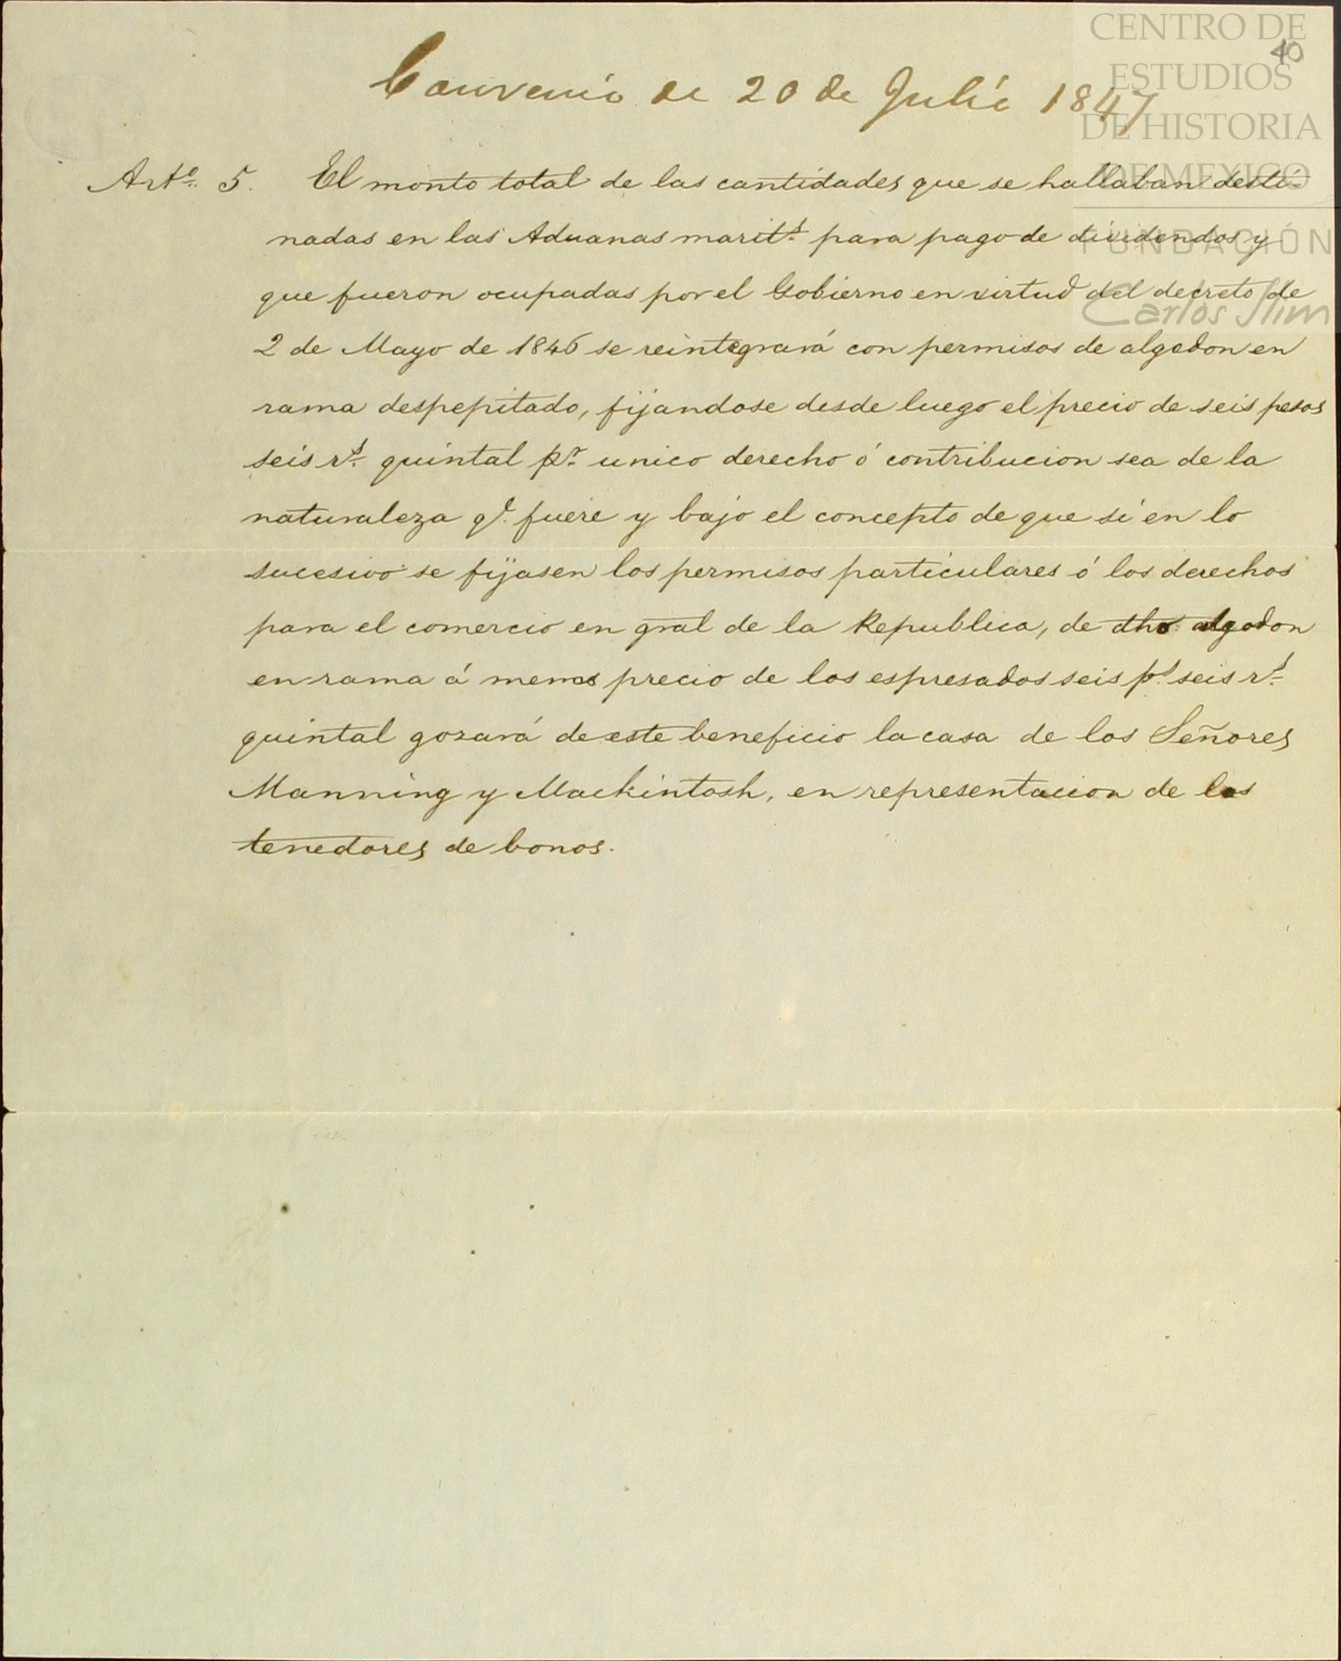 CENTRO DE
ESTUDIOS
DE HISTORIA
DE MEXICO
FUNDACIÓN
Carlos Slim
40
Convenio de 20 de Julio 1847
Arto. 5. El monto total de las cantidades que se hallaban desti-
nadas en las Aduanas marits. para pago de dividendos y
que fueron ocupadas por el Gobierno en virtud del decreto de
2 de Mayo de 1846 se reintegrará con permisos de algodon en
rama despepitado, fijandose desde luego el precio de seis pesos
seis rs. quintal pr. unico derecho ó contribucion sea de la
naturaleza qe. fuere y bajo el concepto de que si en lo
sucesivo se fijasen los permisos particulares ó los derechos
para el comercio en gral de la Republica, de dho. algodon
en rama á menos precio de los espresados seis ps. seis rs.
quintal gozará de este beneficio la casa de los Señores
Manning y Mackintosh, en representacion de los
tenedores de bonos.